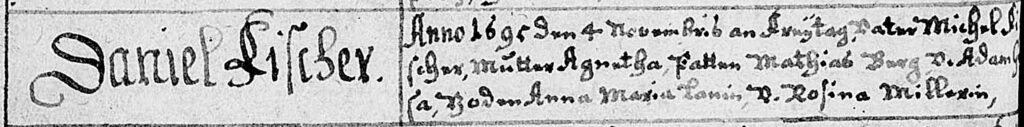 Daniel Fischer.
Anno 1695 den 4 Novembris an Freytag, Vater Michel Fi
scher, Mutter Agnetha, Patten Mathias Berg v. Adam
sa, Goden Anna Maria v. Rosina Millerin,